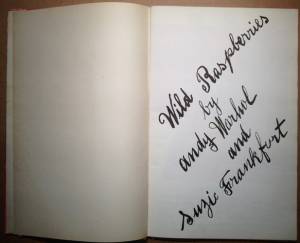 Wild Raspberries
by
andy Warhol
and
Suzie Frankfurt